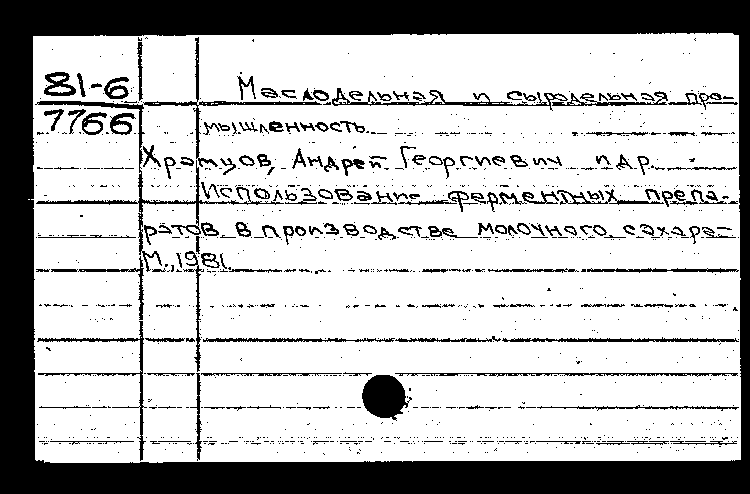 81-6
Маслодельная и сыродельная про-
7766
мышленность
Храмцов, Андрей Георгиевич и др.
Использование ферментных препа-
ратов в производстве молочного сахара-
М., 1981.